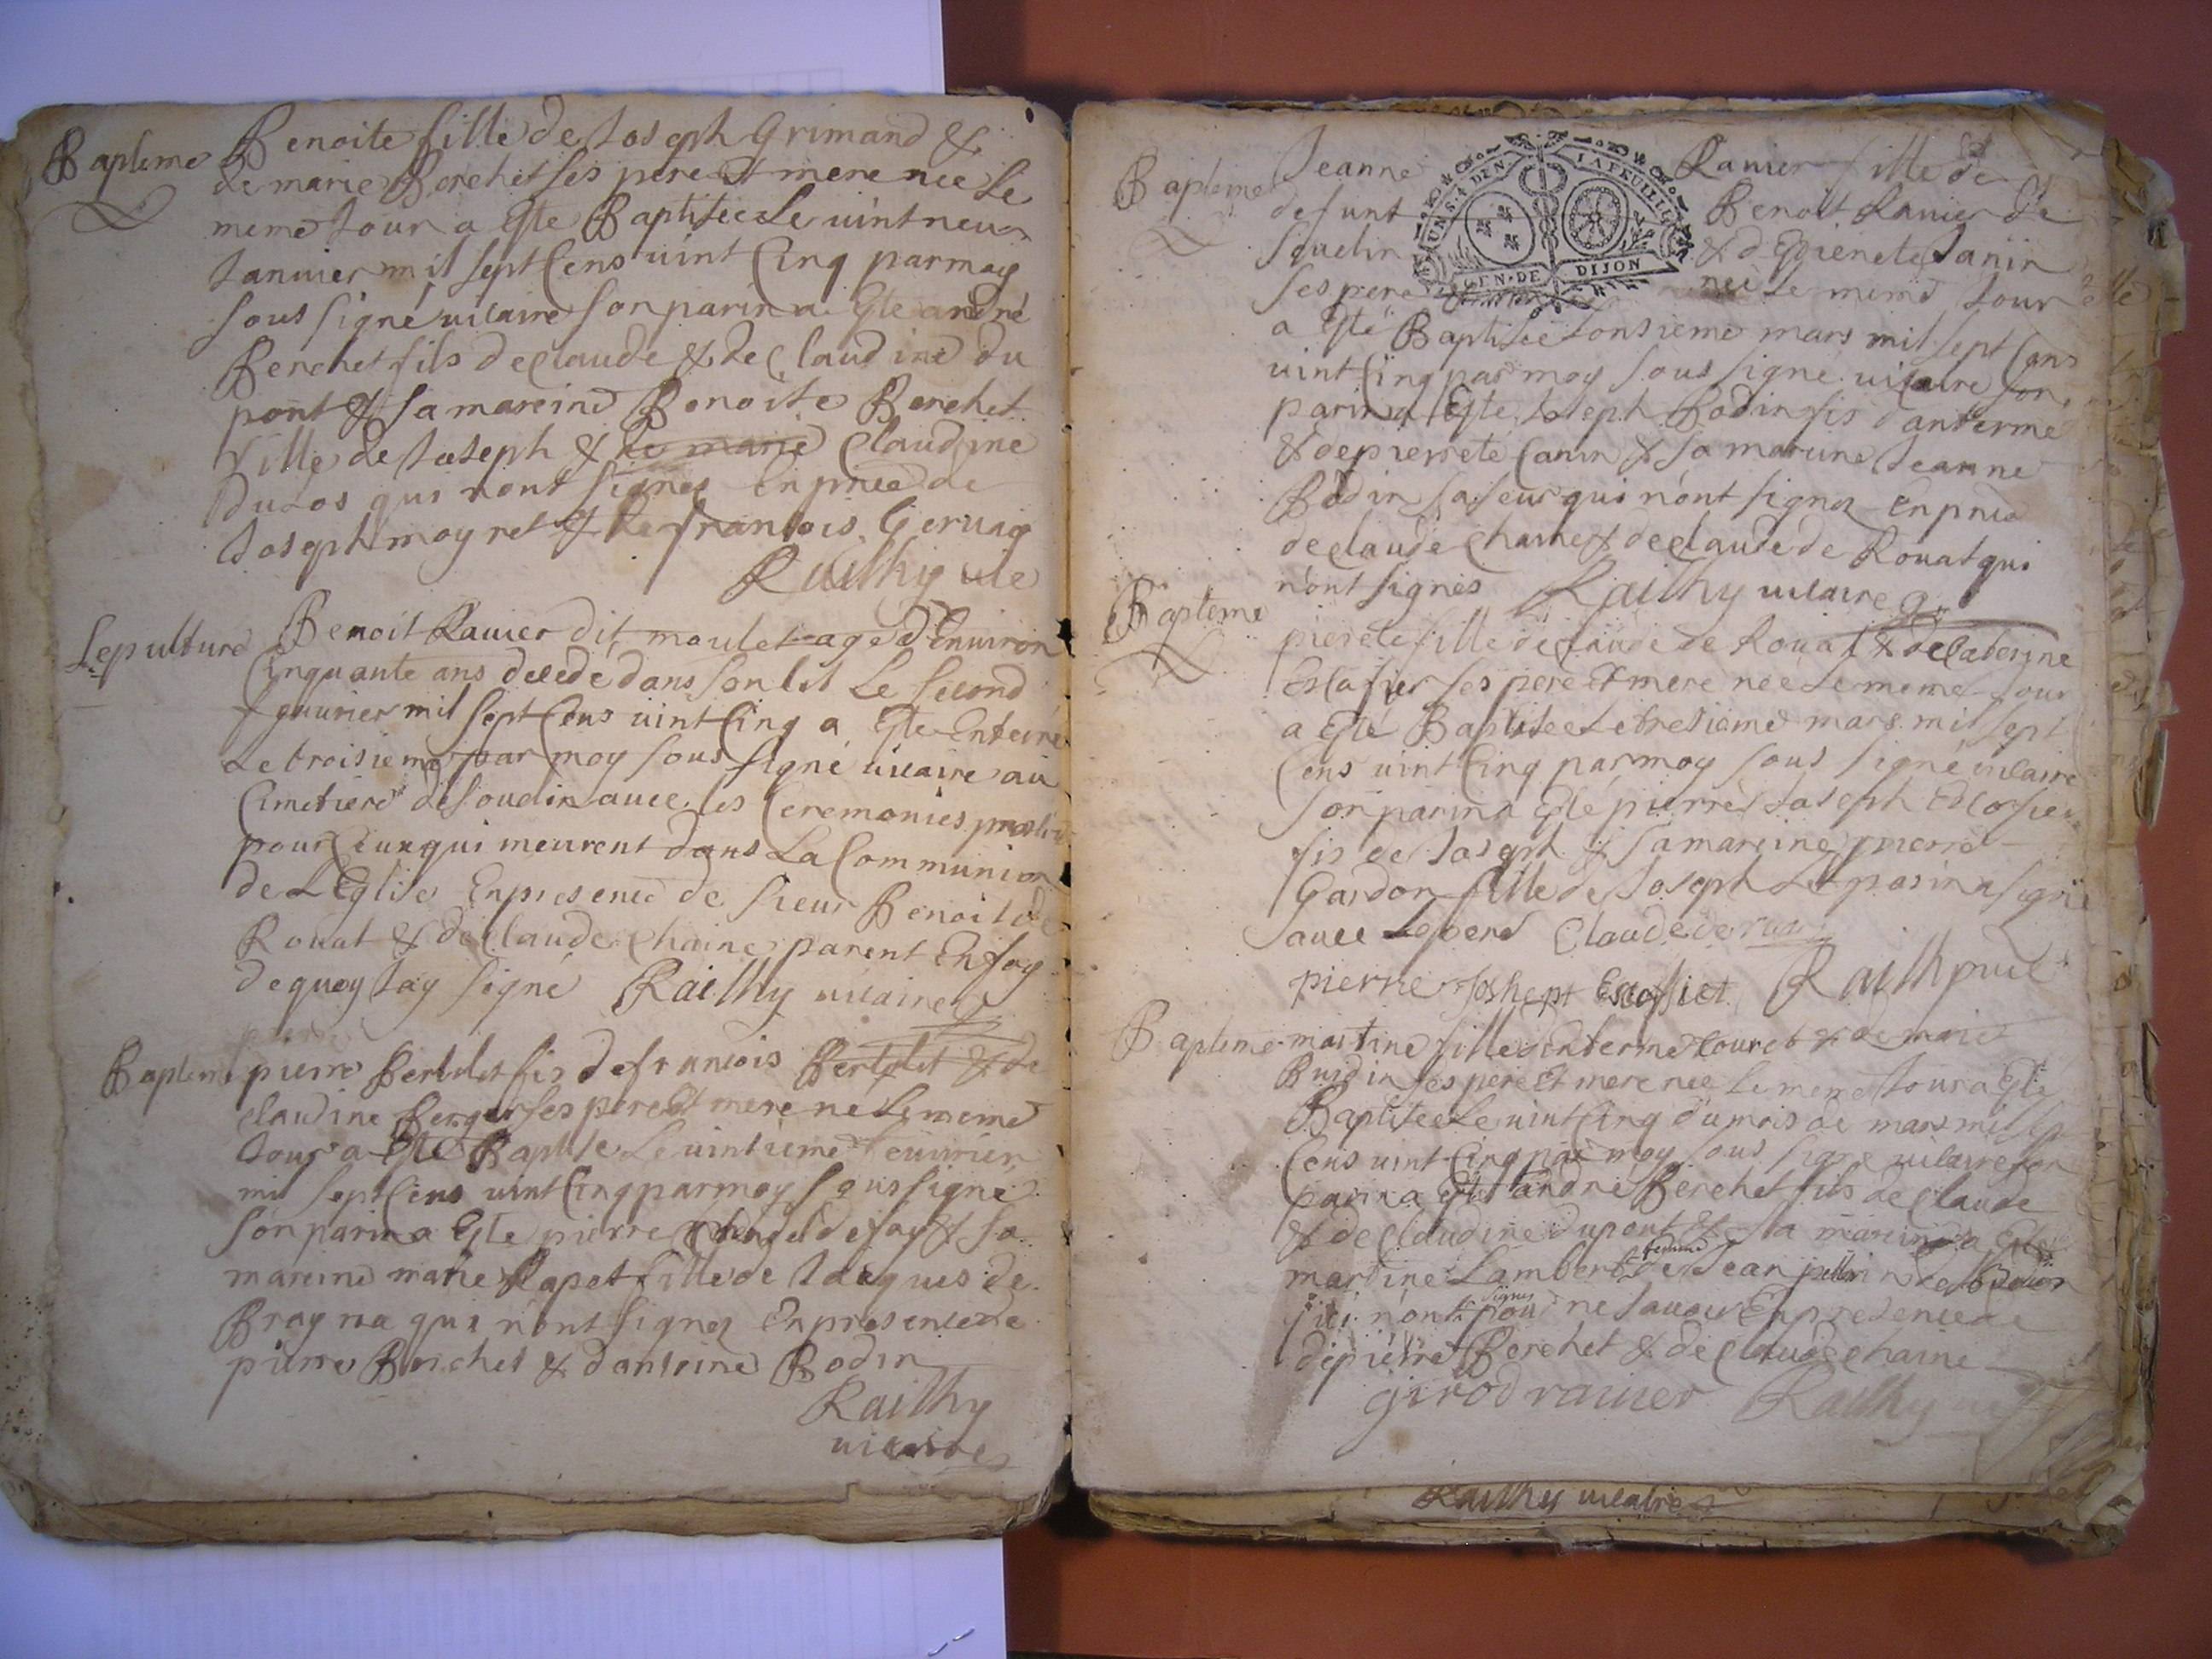 Bapteme
Benoite fille de Joseph Grimand &
de marie Berchet ses pere et mere née le
meme Jour a este Baptisée Le vint neuf
Januier mil sept cens vint cinq par moy
sous signé vicaire son parin a este andré
Berchet fils de claude & de claudine du
pont & sa mareine Benoite Berchet
fille de Joseph & de marie Claudine
Duclos qui nont signes En pnce de
Joseph moyret & de francois Geruag
Raithy vic
Sepulture
Benoit Rauier dit moulet agé d'Enuiron
Cinquante ans decedé dans son lit Le second
feurier mil sept cens vint cinq a este Enterré
Le troisieme par moy sous signé vicaire au
Cimetiere de souclin auec les Ceremonies
pour ceux qui meurent dans La Communion
de L'Eglise En presence de sieur Benoit de
Rouat & de claude chaine parent En foy
de quoy J'ay signé Raithy vicaire
Bapteme
pierre Bertelet fis de francois Bertelet & de
claudine Berger ses pere et mere né le meme
Jour a este Baptisé Le vintieme feurier
mil sept cens vint cinq par moy sous signé
son parin a este pierre de fay & sa
mareine marie Rapet fille de Jacques de
Bragna qui n'ont signes En presence de
pierre Berchet & d'antoine Bodin
Raithy
vicaire
Bapteme
Jeanne Rauier fille de
defunt Benoit Rauier de
Souclin & d'Estienete Janin
ses pere née Le meme Jour
a esté Baptisée L'onsieme mars mil sept cens
vint cinq par moy sous signé vicaire son
parin a este Joseph Bodin fis d'anterme
& de pierrete Canin & sa mareine Jeanne
Bodin sa seur qui n'ont signes En pnce
de claude chaine & de claude de Rouat qui
n'ont signés Raithy vicaire
Bapteme
pierete fille de claude de Rouat & de caterine
Escofier ses pere et mere née Le meme Jour
a esté Baptisée Le tresieme mars mil sept
cens vint cinq par moy sous signé vicaire
son parin a esté pierre Joseph Escofier
fis de Joseph & sa mareine pierre
Gardon fille de Joseph Le parin a signé
auec Le pere Claude de ruat
pierre Joshept Escoffiet Raithy vic
Bapteme
martine fille d'anterme couret & de marie
Burdin ses pere et mere née le meme Jour a esté
Baptisée Le vint cinq du mois de mars mil sep
cens vint cinq par moy sous signé vicaire son
parin a esté andré Berchet fils de claude
& de claudine dupont & sa mareine a esté
martine Lambert femme de Jean
qui n'ont signes pour ne sauoir En presence de
de pierre Berchet & de claude chaine
girod rauier Raithy
Raithy vicaire
GEN. DE DIJON